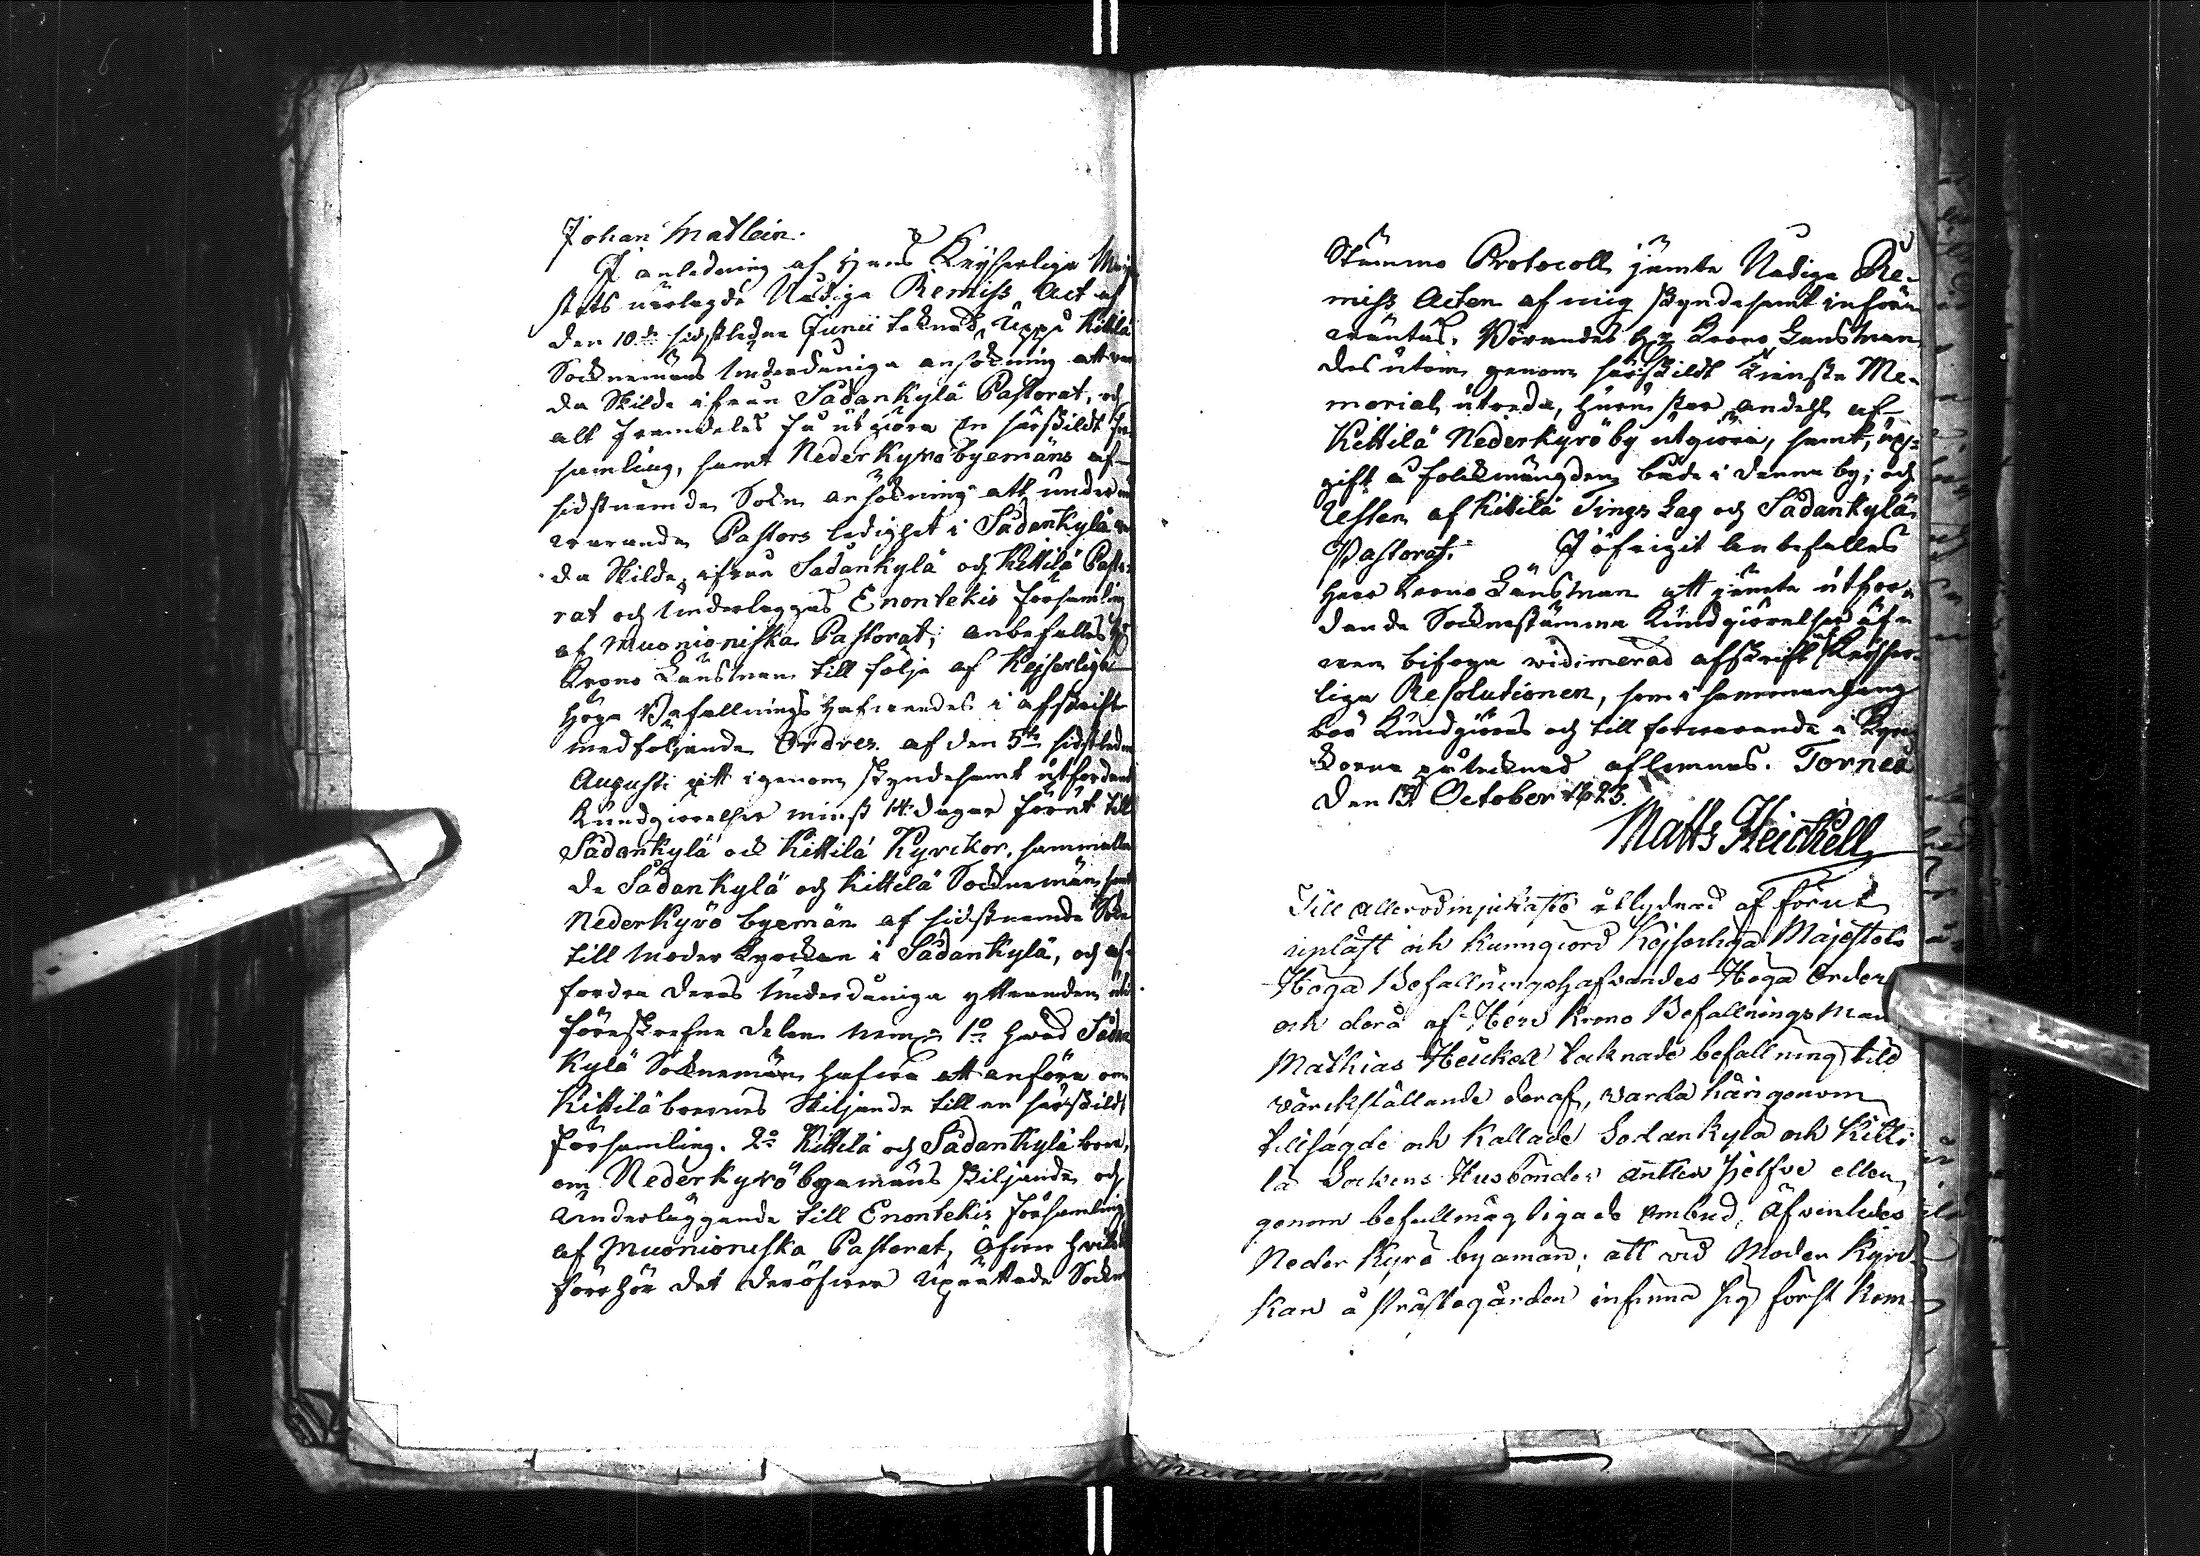 Johan Matlein.
I anledning af Hans Keijserliga Maij
stets utslagde Nådiga Remiss Act af
den 10de sidstledne Junii tecknad, uppå Kittilä
Socknemäns Underdåniga ansökning att
da Skilde ifrån Sådankylä Pastorat, och
att framdeles få utgiöra En särskildt För
samling, samt Nederkyrö byemäns af
sidstnemde Sokn ansökning att under
warande Pastors ledighet i Sådankylä
da Skilde ifrån Sådankylä och Kittilä Pasto
rat och Underläggas Enontekis Församling
af Muonioniska Pastorat; anbefalles Hr
Krono Länsman till följe af Kejserliga
Höga Befallnings Hafwandes i afskrift
medföljande Ordres af den 5te sidstledne
Augusti att igenom skyndesamt utfärdande
Kundgiörelser minst 14 dagar förut till
Sådankylä och Kittilä Kyrckor, sammankalla
de Sådankylä och Kittilä Socknemän samt
Nederkyrö byemän af sidstnemde Sokn
till Moder Kyrckan i Sådankylä, och af-
fordra deras Underdåniga yttranden uti
föreskrefne delar nemln 1o hwad Sådan
kylä Socknemän hafwa att anföra om
Kittilä boernes Skiljande till en särskildt
församling. 2o Kittilä och Sådankylä boer,
om Nederkyrö byamäns skiljande och
Underläggande till Enontekis Församling
af Muonioniska Pastorat, öfwer hwilket
förehör det deröfwer Uprättade Sockne
Stämmo Protocoll jämte Nådiga Re-
miss Acten af mig skyndesamt inför
wäntas. Börandes Hr Krono Länsman
desutom genom särskildt Tienste Me-
morial utreda, huru stor andehl af
Kittilä Nederkyrö by utgiöra, samt, upp-
gift å folckmängden både i denne by; och
Uften af Kittilä Tings Lag och Sådankylä
Pastorat. I öfrigit anbefalles
Herr Krono Länsman att jämte utfär-
dande Socknestämme Kundgiörelsen äf-
wen bifoga widimerad afskrift Keijser-
liga Resolutionen, som i sammanhang
bör Kundgiöres och till förwarande i Kyr
ckorne påtecknad aflemnas. Torneå
den 13 October 1823.
Matts Heickell
Till allerödmjukaste åtlydnad af förut
upläst och kunngiord Kejserliga Majestets
Höga Befallningshafvandes Höga Order
och derå af Herr Krono Befallnings Man
Mathias Heickell tecknade befallning till
värckställande deraf, varda härigenom
tillsagde och kallade Sodankylä och Kitti
lä Sockens Husbönder antten sjelfve eller
genom befullmägtigade ombud, Äfvenledes
Neder Kyrö byamän; att vid Moder Kyrc
kan å Prästegården infinna sig först kom-